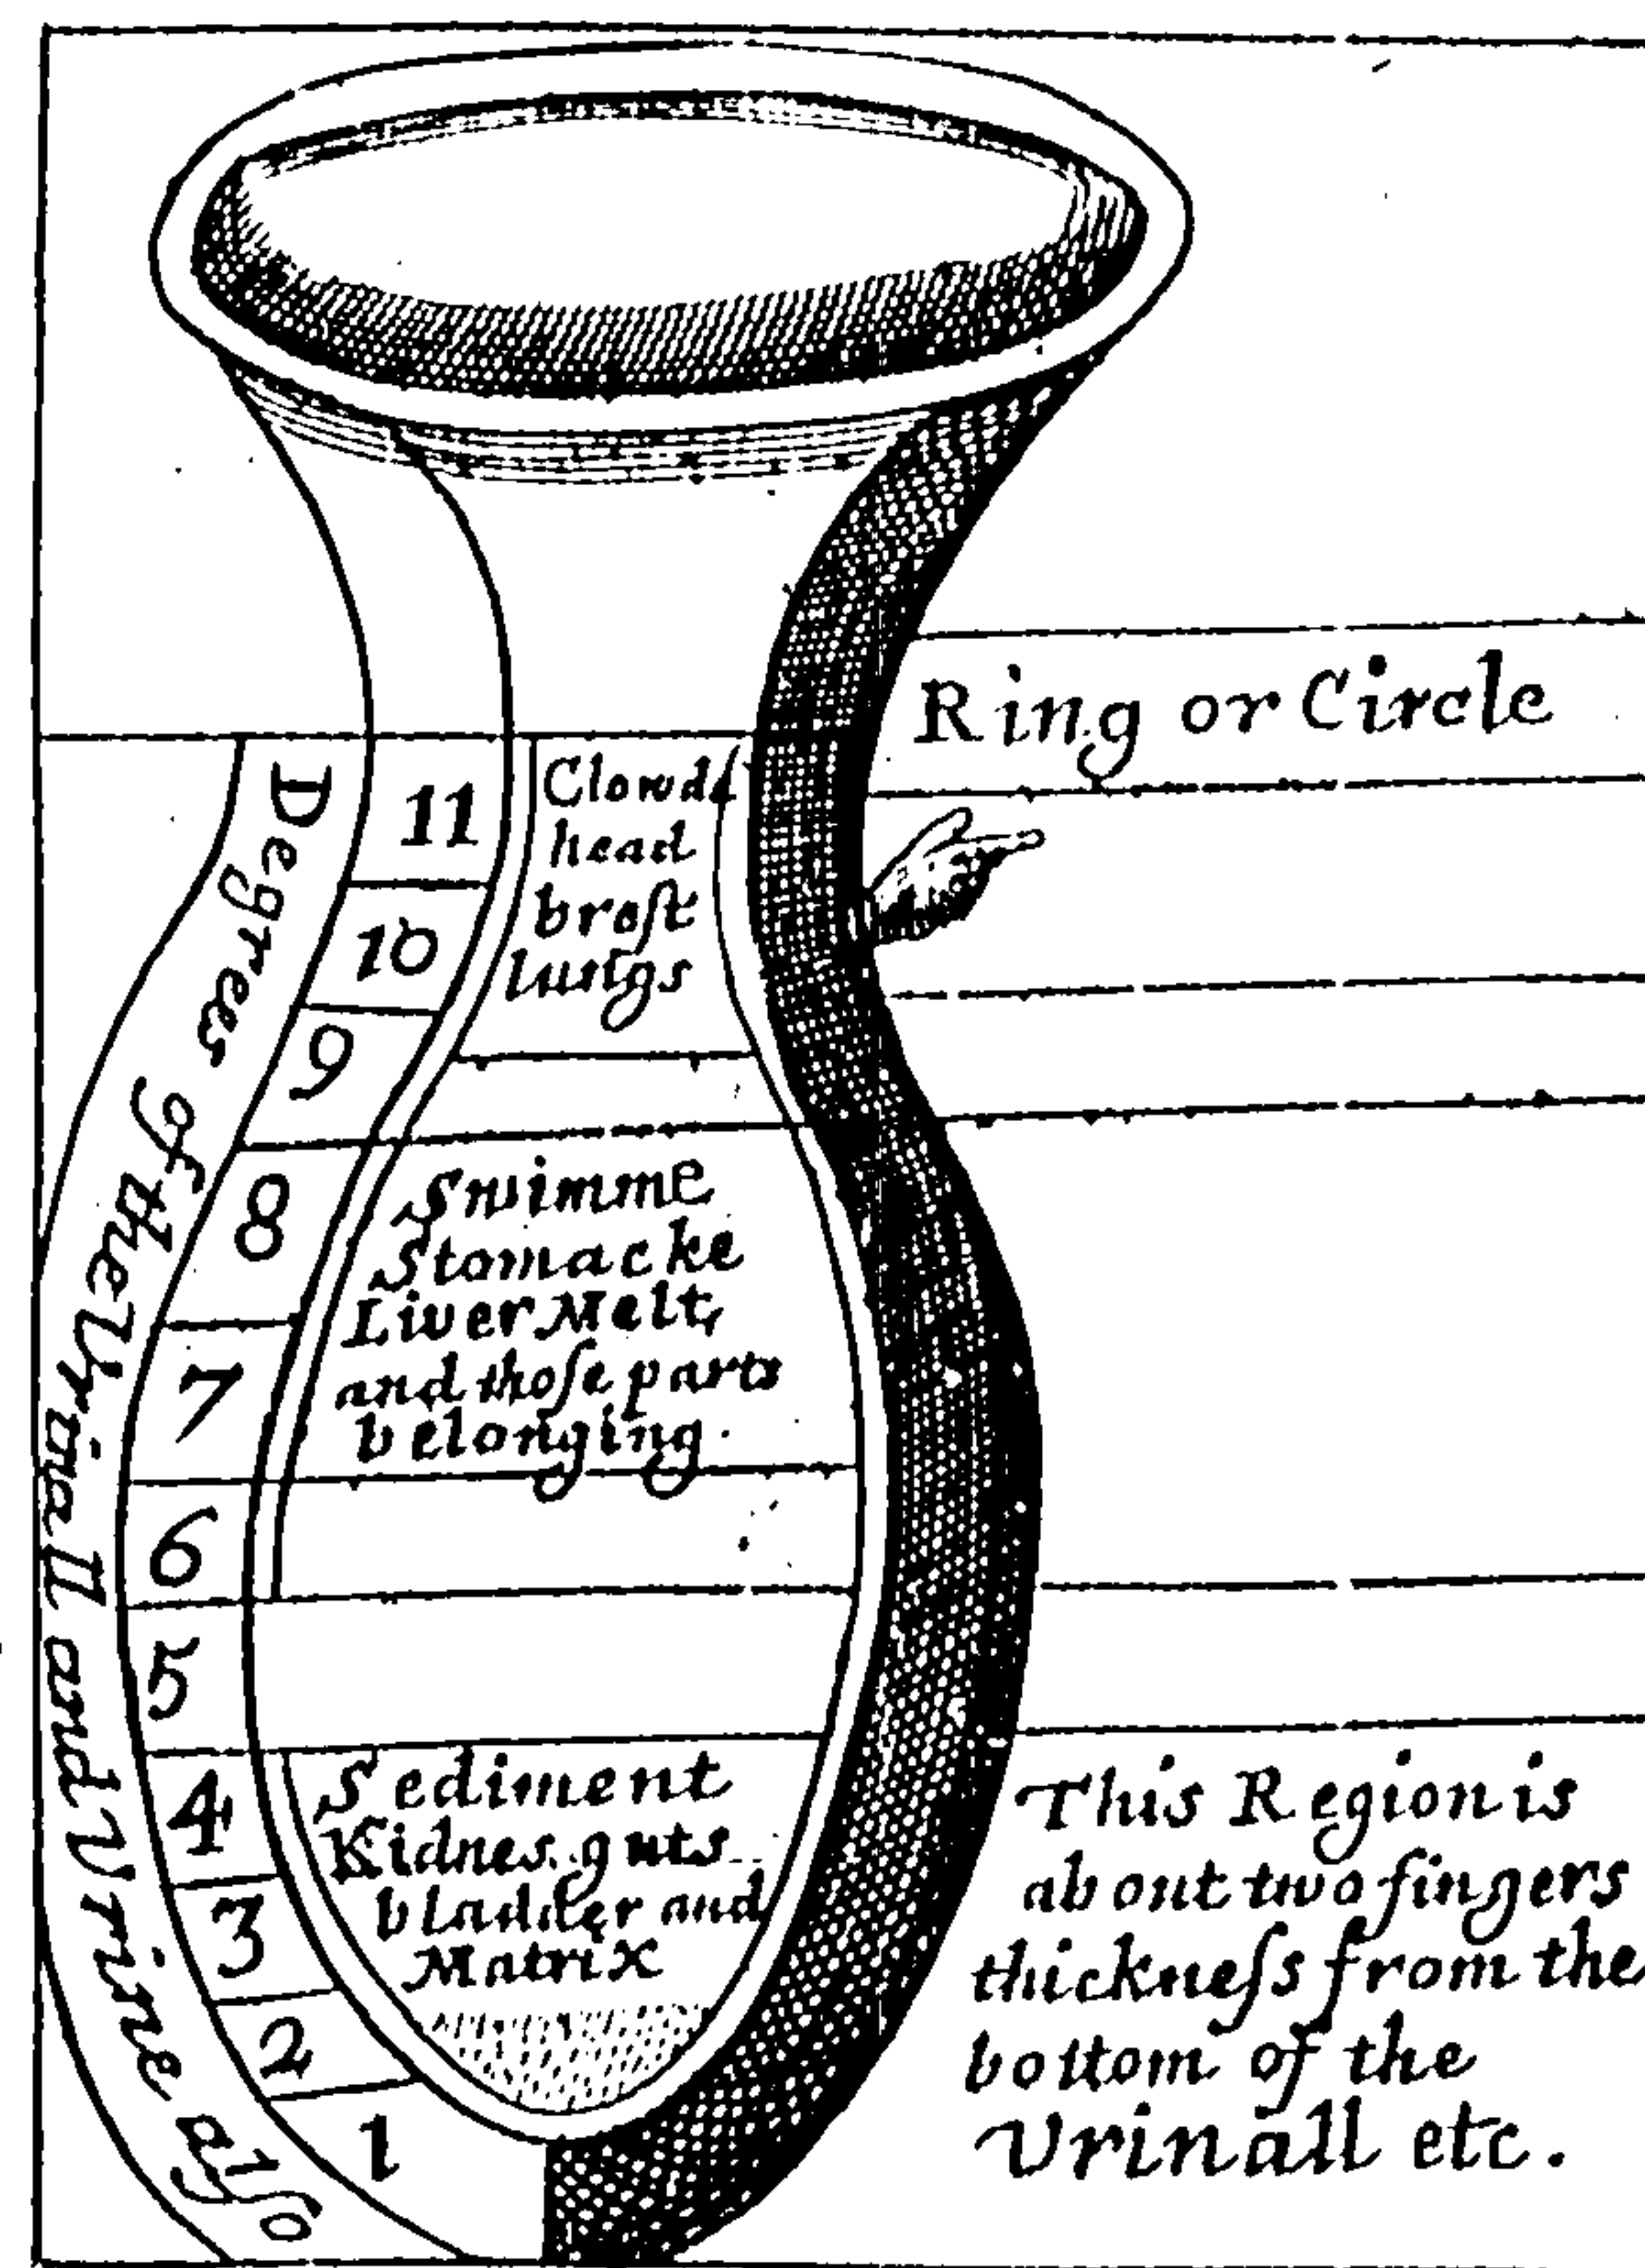 Ring or Circle
Degrees of the Vrinall and Vrine also
11
10
9
8
7
6
5
4
3
2
1
Clowds
head
brest
lungs
Swimme
Stomacke
Liver Melt,
and thoſe parts
belonging.
Sediment
Kidnes guts
bladder and
Matrix
This Region is
about two fingers
thickneſs from the
bottom of the
Vrinall etc.